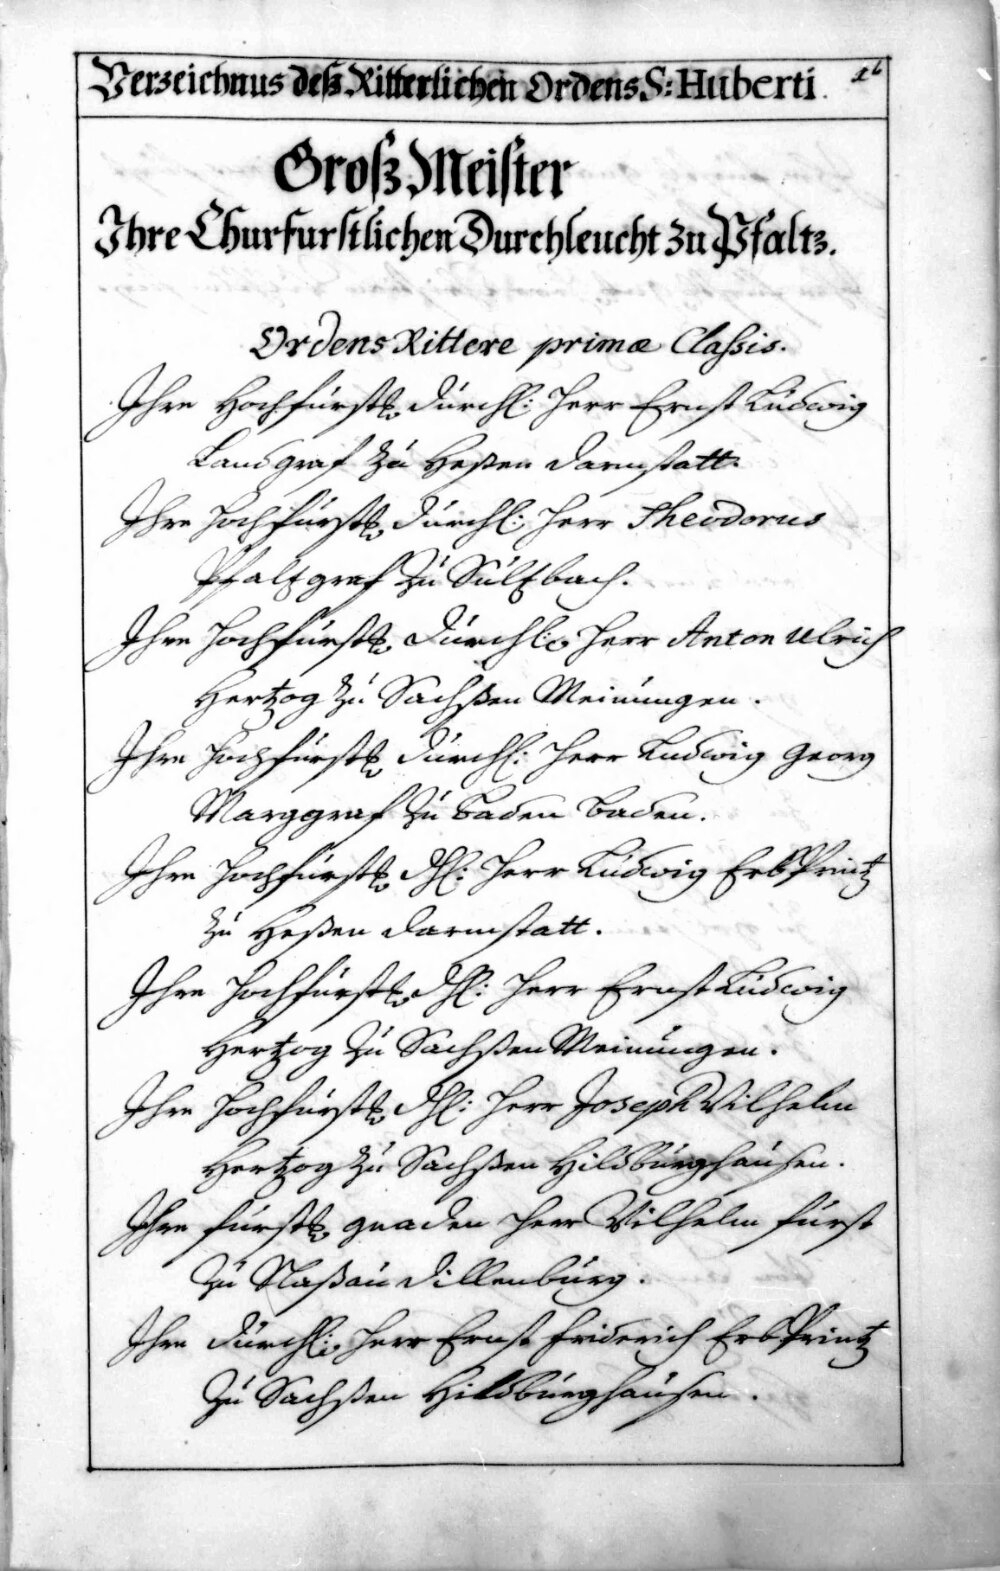 Verzeichnus deß Ritterlichen Ordens S: Huberti.
16
Groß Meister
Ihre Churfurstlichen Durchleucht zu Pfaltz.
Ordens Rittere primæ Classis.
Ihre Hochfürstl. Dürchl: Herr Ernst Lüdwig
Landgraf zü Heßen Darmstatt.
Ihre Hochfürstl. Dürchl: Herr Theodorus
Pfaltzgraf zü Sültzbach.
Ihre Hochfürstl. Dürchl: Herr Anton Ulrich
Hertzog zü Sachßen Meinungen.
Ihre Hochfürstl. Dürchl: Herr Ludwig Georg
Marggraf zü Baden Baden.
Ihre Hochfürstl. Dhl: Herr Lüdwig ErbPrintz
zü Heßen Darmstatt.
Ihre Hochfürstl. Dhl: Herr Ernst Lüdwig
Hertzog zü Sachßen Meinüngen.
Ihre Hochfürstl. Dhl: Herr Joseph Wilhelm
Hertzog zü Sachßen Hildbürghaüsen.
Ihre fürstl. gnaden Herr Wilhelm fürst
zü Naßaü Dillenbürg.
Ihre Dürchl: Herr Ernst friderich ErbPrintz
zü Sachßen Hildbürghaüsen.